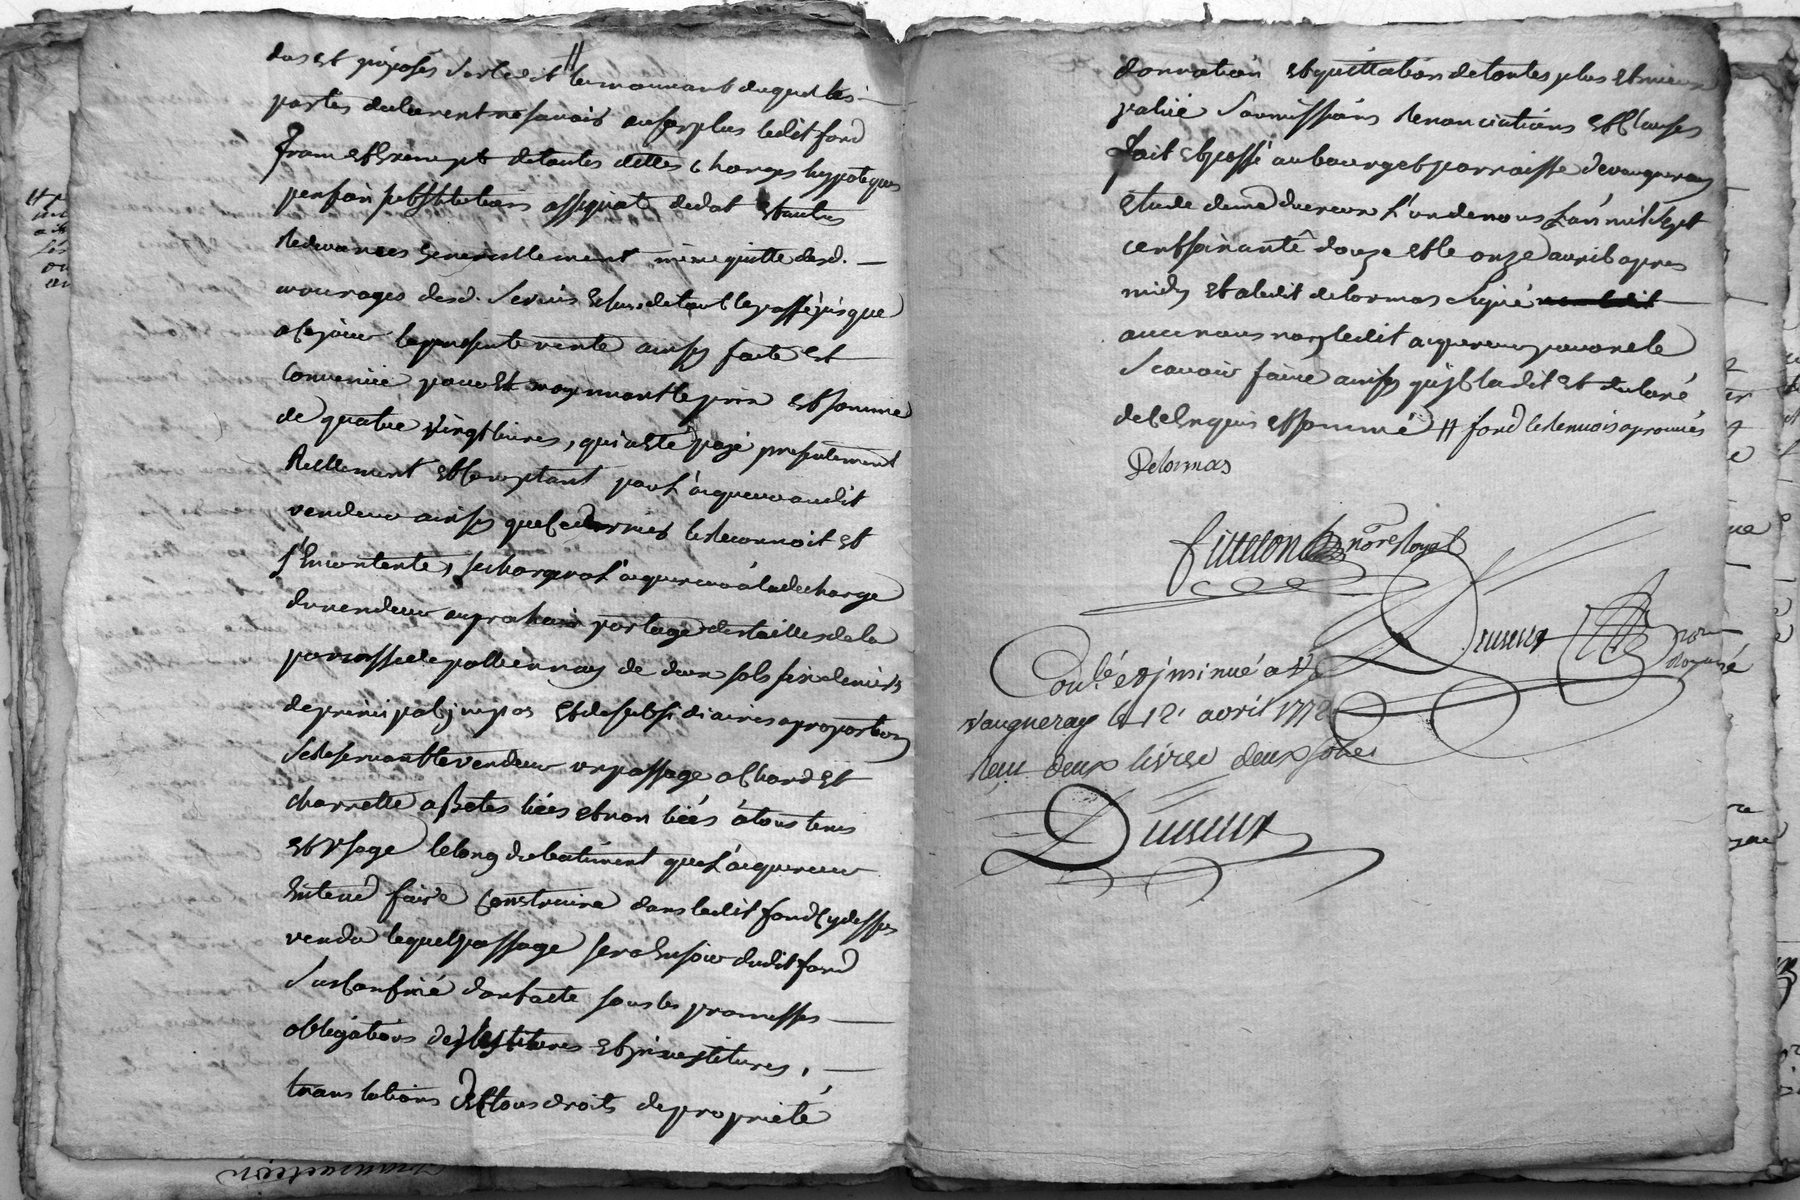 dus et imposés sur ledit // le mouvant duquel les
parties declarent ne savoir au surplus ledit fond
franc et exempt de toutes dettes charges hypoteques
pension substitution assignat dedot et autres
Redevances generallement même quitte desd. —
arrerages desd. servis et du tout le passé jusque
a ce jour la presente vente ainsy faite et —
convenüe pour et moyennant le prix et somme
de quatre vingt livres, qui a eté payé presentement
Reellement et comptant par l'acquereur audit
vendeur ainsy que ce dernier le reconnoit et
s'en contente, se chargera l'acquereur à la decharge
du vendeur au prochain partage des tailles de la
parroisse de pollionnay de deux sols six deniers
de principal impos et de subsidiaires a proportion
se reservant le vendeur un passage a Chard et
charrette a Betes liées et non liées à tous tems
et Usage le long du batiment que l'acquereur
entend faire construire dans ledit fond Cy dessus
vendu lequel passage sera du soir dudit fond
sus confiné dont acte sous les promesses —
obligations des titures et investitures, —
translations de tous droits de proprieté
donnation et quittation de toutes plus et mieux
value soumissions Renonciations et Clauses
fait et passé au bourg et parroisse de vaugneray
etude de me ducreux L'un de nous L'an mil sept
cent soixante douze et le onze avril apres
midy et a ledit delormas signé
avec nous non ledit acquereur pour ne le
scavoir faire ainsy qu'il l'a dit et declaré
de ce Enquis et sommé // fond le renvois aprouvés
Delormas
nore Royal
Ducreux
Conlé et insinué a
Vaugneray le 12 avril 1772
Reçu deux livres deux sols
Ducreux
transaction